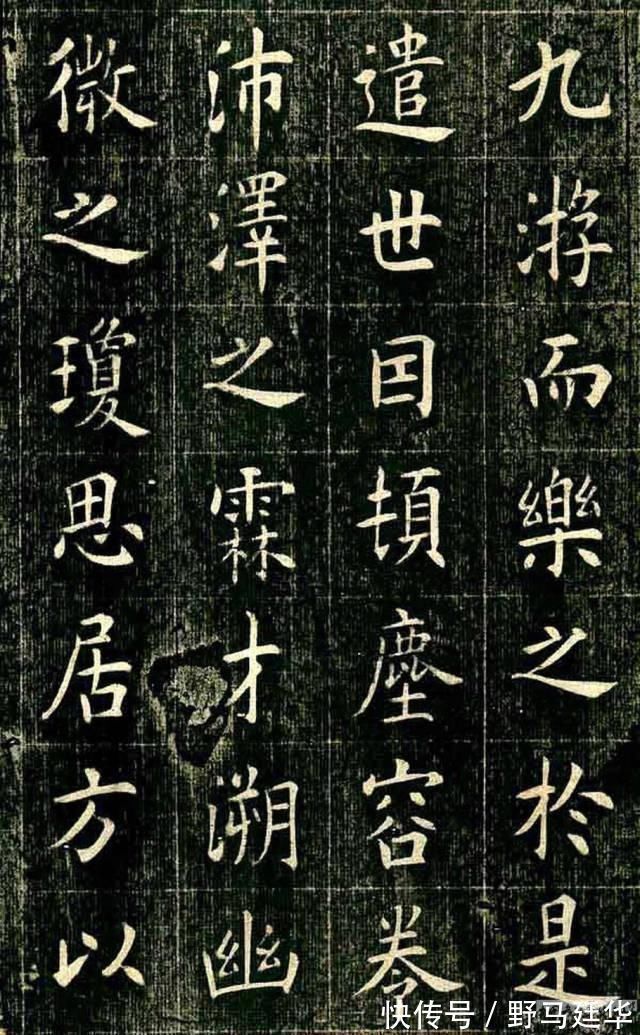 九游而樂之於是
遣世囯頓塵容眷
沛澤之霖才溯幽
微之瓊思居方以
快传号 / 野马廷华